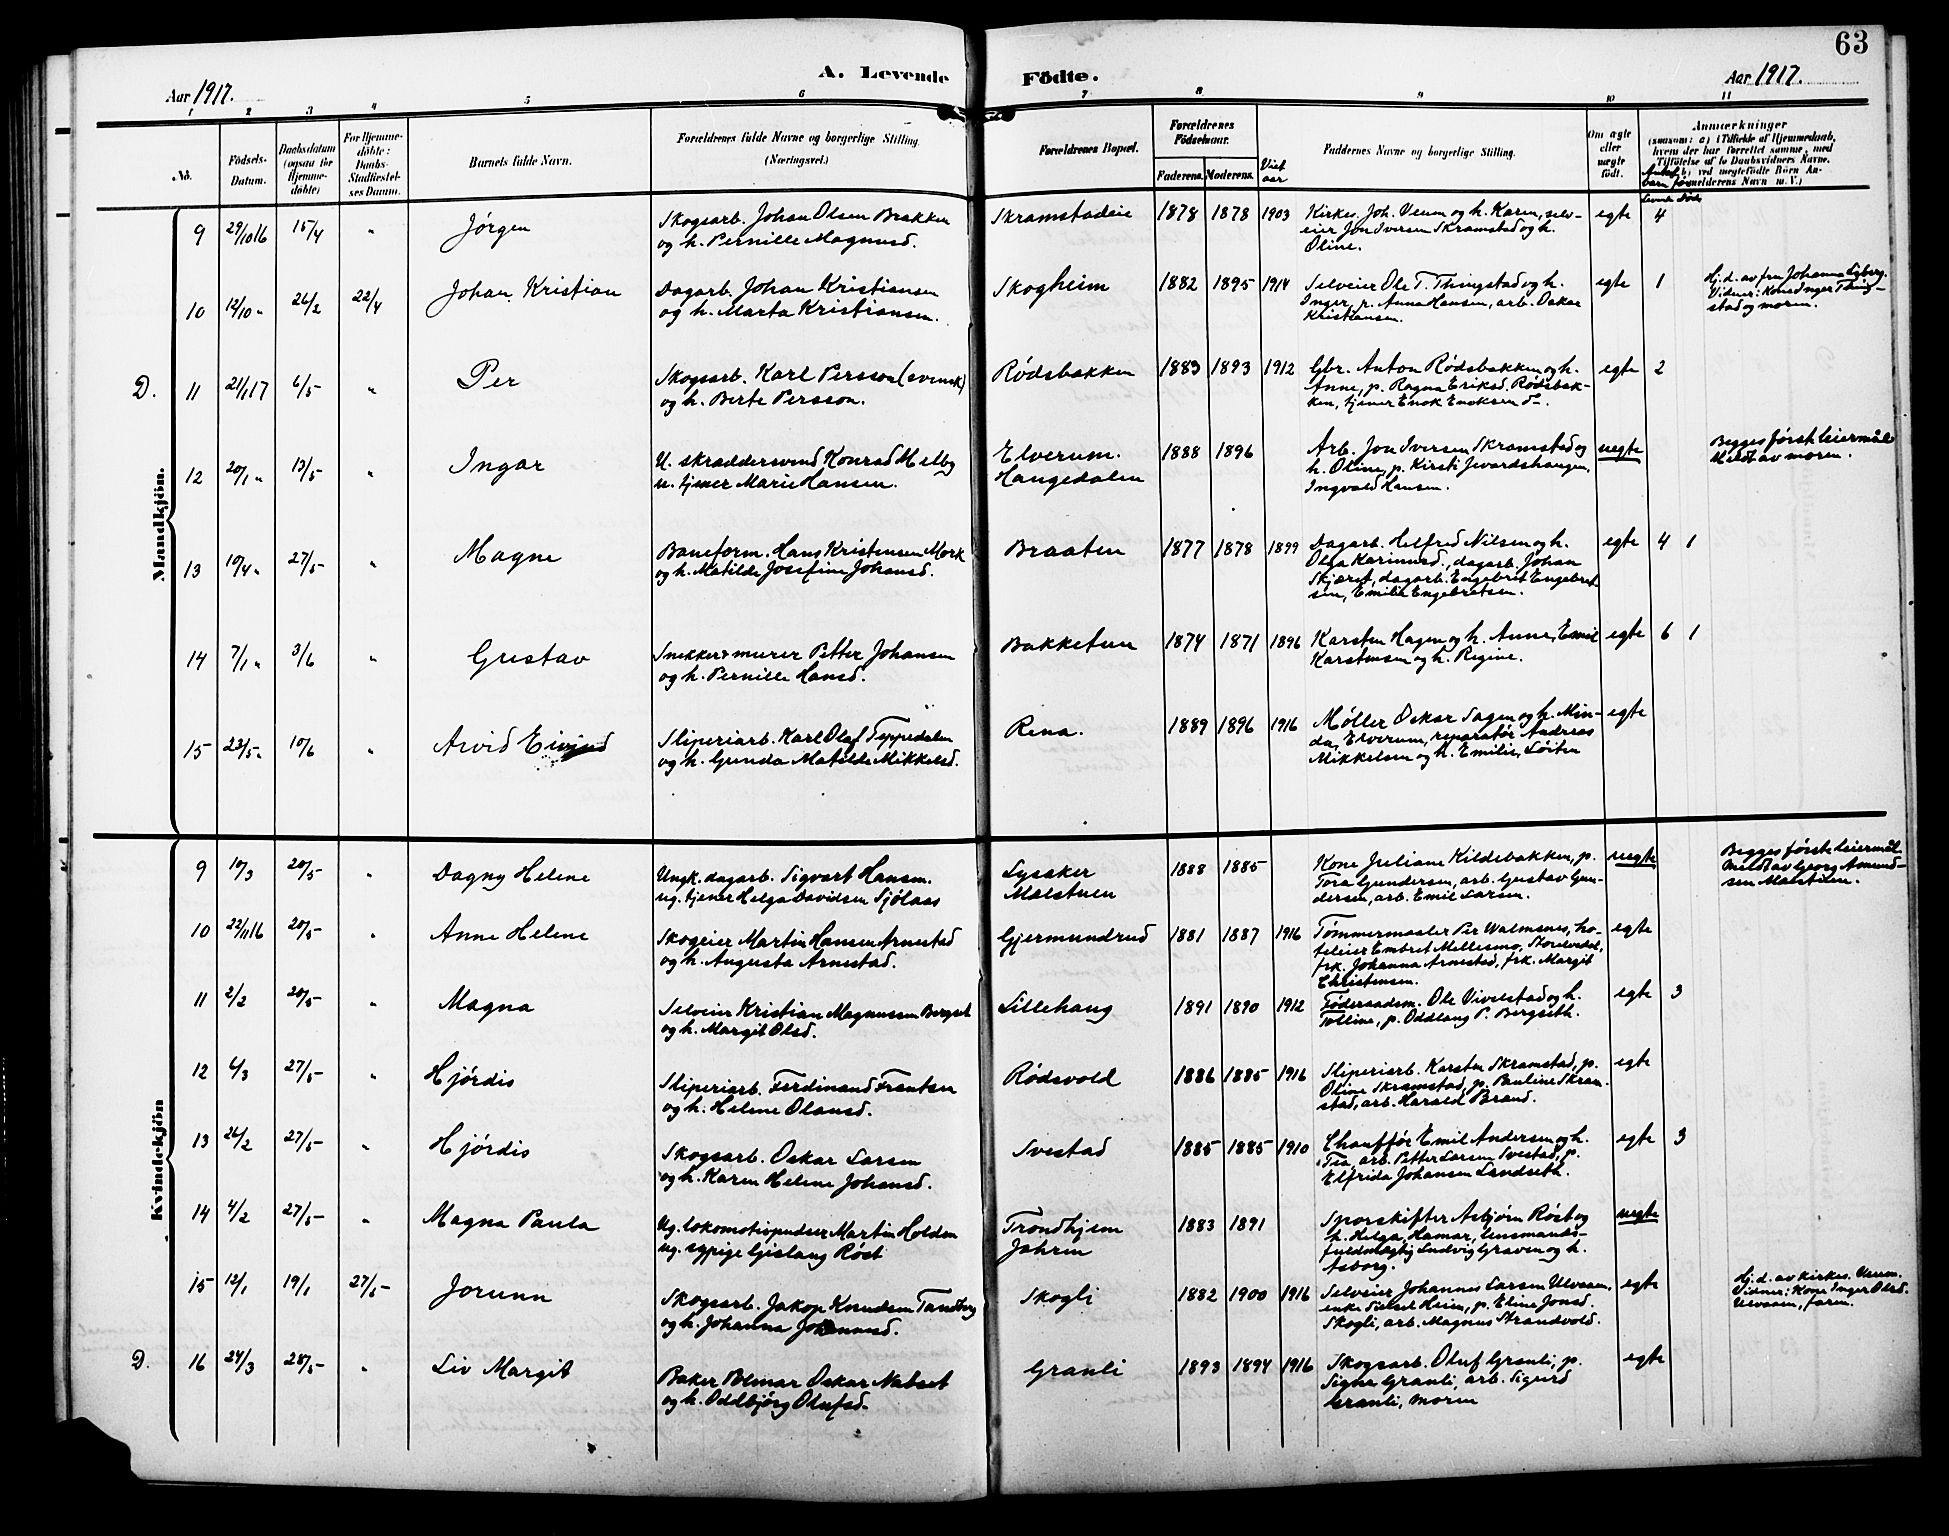 63
A. Levende Födte.
Aar 1917.
Aar 1917.
1 2 3 4 5 6 7 8 9 10 11
No.
Födsels-Datum.
Daabsdatum (ogsaa for Hjemmedöbte)
For Hjemmedöbte: Daabs-Stadfæstelses Datum.
Barnets fulde Navn.
Forældrenes fulde Navne og borgerlige Stilling. (Næringsvei.)
Forældrenes Bopæl.
Forældrenes Födselsaar.
Faderens. Moderens.
Viet aar
Faddernes Navne og borgerlige Stilling.
Om ægte eller uægte födt.
Anmærkninger
(saasom: a) i Tilfælde af Hjemmedaab, hvem der har forrettet samme, med Tilföielse af to Daabsvidners Navne. b) ved uægtefödte Börn Anmelderens Navn m. V.)
Levende Døde
Mandkjön.
9 29/10 16 15/4 " Jørgen
Skogsarb. Johan Olsen Bakken
og h. Pernille Magnusd.
Skramstadeie 1878 1878 1903
Kirkes. Joh. Veum og h. Karen, selv-
eier Jon Iversen Skramstad og h.
Oline.
egte 4
10 12/10 " 26/2 22/4 Johan Kristian
Dagarb. Johan Kristiansen
og h. Marta Kristiansen.
Skogheim 1882 1895 1914
Selveier Ole T. Thingstad og h.
Inger, p. Anna Hansen, arb. Oskar
Kristiansen.
egte 1
Hj. d. av fru Johanna
Vidner: Kone Inger Thing-
stad og moren.
D. 11 21/1 17 6/5 " Per
Skogsarb. Karl Persson (svensk)
og h. Berte Persson.
Rødsbakken 1883 1893 1912
Gbr. Anton Rødsbakken og h.
Anne, p. Ragna Eriksd. Rødsbak-
ken, tjener Enok Enoksen
egte 2
12 20/1 " 13/5 " Ingar
U. skræddersvend Konrad Melby
u. tjener Marie Hansen.
Elverum.
Haugedalen 1888 1896
Arb. Jon Iversen Skramstad og
h. Oline, p. Kirsti
Ingvald Hansen.
uegte
Begges første leiermål
Meldt av moren.
13 10/4 " 27/5 " Magne
Baneform. Hans Kristensen Mork
og h. Matilde Josefine Johansd.
Braaten 1877 1878 1899
Dagarb. Helfred Nilsen og h.
Olga Karinusd., dagarb. Johan
Skjæret, dagarb. Engebret Engebret-
sen, Emilie Engebretsen.
egte 4 1
14 7/1 " 3/6 " Gustav
Snekker & murer Petter Johansen
og h. Pernille Hansd.
Bakketun 1874 1871 1896
Karsten Hagen og h. Anne, Emil
Karstensen og h. Regine.
egte 6 1
15 23/5 " 10/6 " Arvid Eivind
Sliperiarb. Karl Olaf Typpedalen
og h. Gunda Matilde Mikkelsd.
Rena. 1889 1896 1916
Møller Oskar Sagen og h. Min-
da, Elverum, reparatør Andreas
Mikkelsen og h. Emilie, Løiten
egte
Kvindekjön
9 10/3 20/5 " Dagny Helene
Ungk. dagarb. Sigvart Hansen.
ug. tjener Helga Davidsen Sjölaas
Lysaker
Malstuen 1888 1885
Kone Juliane Kildebakken, p.
Tora Gundersen, arb. Gustav Gun-
dersen, arb. Emil Larsen.
uegte
Begges første leiermål.
Meldt av Georg Amund-
sen Malstuen.
10 22/11 16 20/5 " Anne Helene
Skogeier Martin Hansen Arnestad
og h. Augusta Arnestad.
Gjermundrud 1881 1887 1916
Tømmermaaler Per Walmsnes, ho-
teleier Embret Mellesmo, Storelvdal,
frk. Johanna Arnestad, frk. Margit
Christensen.
egte
11 2/2 20/5 " Magna
Selveier Kristian Magnussen Bergset
og h. Margit Olsd.
Lillehaug 1891 1890 1912
Føderaadsm. Ole Vivelstad og h.
Tolline, p. Oddlaug P. Bergseth.
egte 3
12 6/3 27/5 " Hjördis
Sliperiarb. Ferdinand Frantsen
og h. Helene Olausd.
Rødsvold 1886 1885 1916
Sliperiarb. Karsten Skramstad, p.
Oline Skramstad, p. Pauline Skram-
stad, arb. Harald Brand.
egte
13 26/2 27/5 " Hjördis
Skogsarb. Oskar Larsen
og h. Karen Helene Johansd.
Svestad 1885 1885 1910
Chauffør Emil Andersen og h.
Tea, arb. Petter Larsen Svestad, p.
Elfrida Johansen Landseth.
egte 3
14 4/2 27/5 " Magna Paula
Ug. lokomotivpudser Martin Holden
ug. sypige Gislaug Røst
Trondhjem
Jahren 1883 1891
Sporskifter Asbjørn Røst og
h. Helga, Hamar, lensmands-
fuldmægtig Ludvig Graven og h.
Asborg.
uegte
15 12/1 19/1 27/5 Jorunn
Skogsarb. Jakop Knudsen Tandberg
og h. Johanna
Skogli 1882 1900 1916
Selveier Johannes Larsen Ulvaaen,
enke Sidsel Heim, p. Eline Jonsd.
Skogli, arb. Magnus Strandvold.
egte
Hj. d. av kirkes. Veum.
Vidner: Kone Inger Olsd.
Ulvaaen, faren.
D. 16 24/3 28/5 " Liv Margit
Baker Oskar Nabset
og h. Oddbjørg Olufsd.
Granli 1893 1894 1916
Skogsarb. Oluf Granli, p.
Signe Granli, arb. Sigurd
Granli, moren
egte